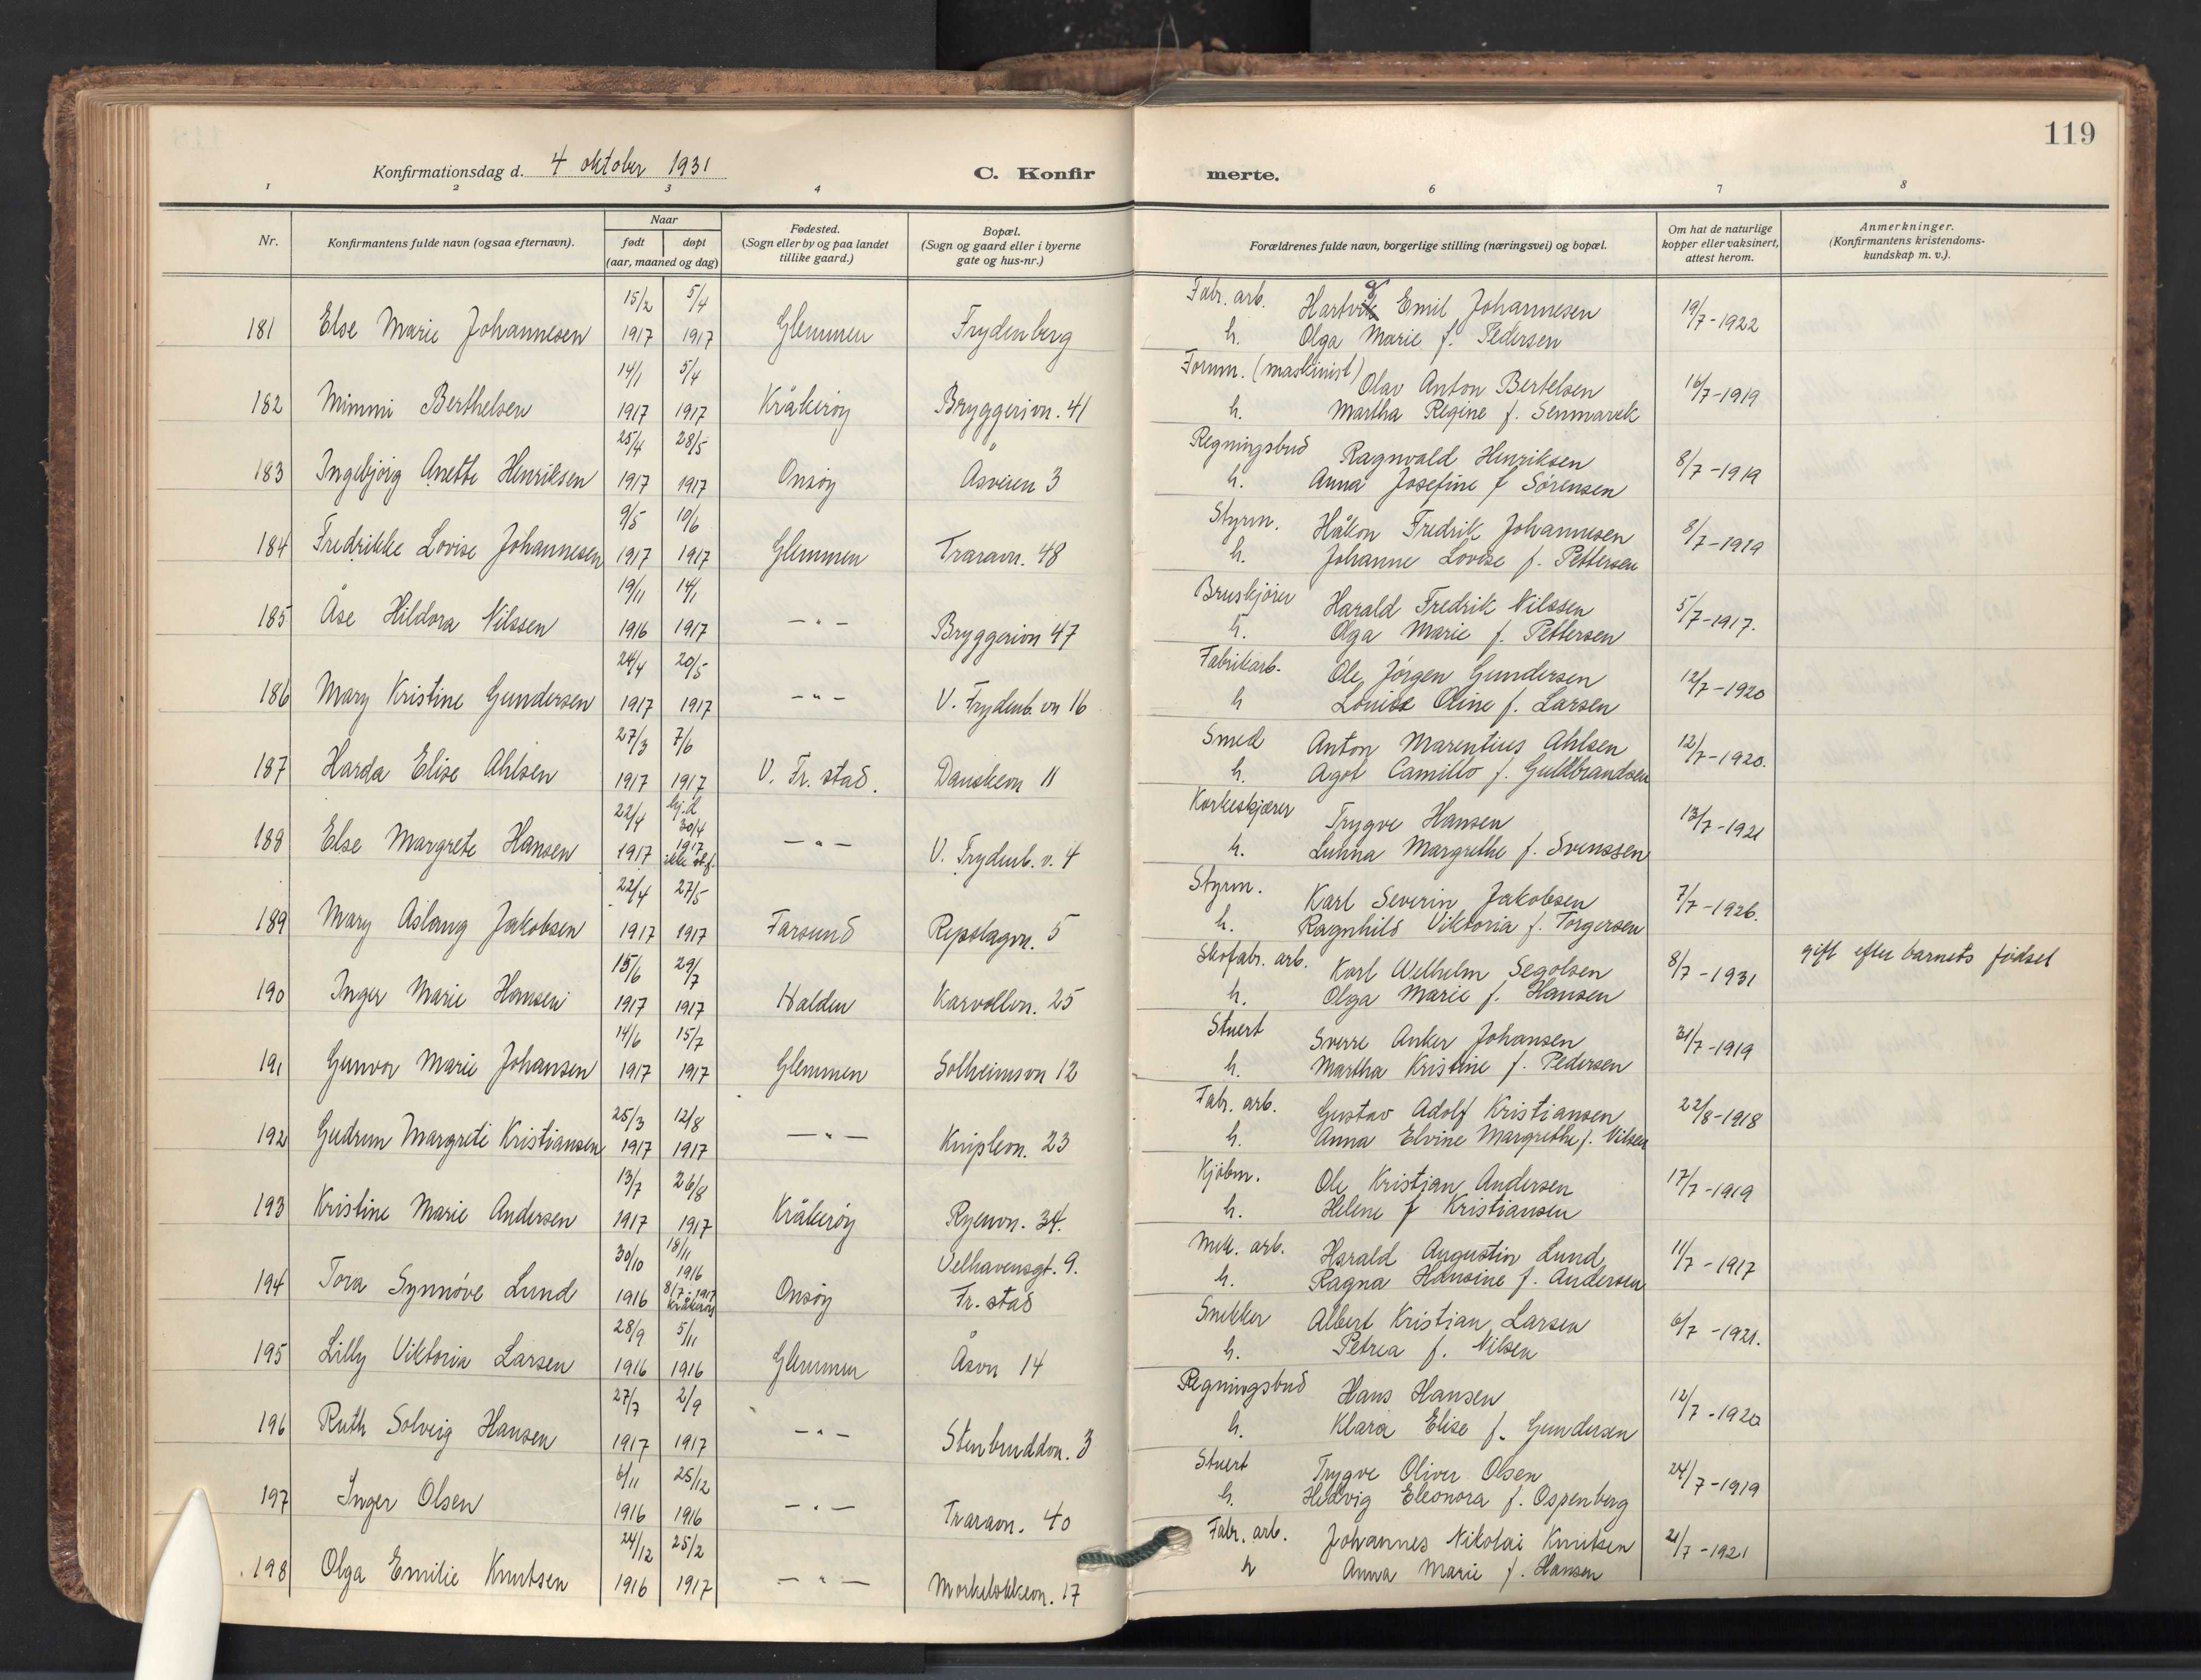 119
Konfirmationsdag d. 4 oktober 1931
C. Konfirmerte.
1 2 3 4 6 7 8
Nr.
Konfirmantens fulde navn (ogsaa efternavn).
Naar
født døpt
(aar, maaned og dag)
Fødested.
(Sogn eller by og paa landet
tillike gaard.)
Bopæl.
(Sogn og gaard eller i byerne
gate og hus-nr.)
Forældrenes fulde navn, borgerlige stilling (næringsvei) og bopæl.
Om hat de naturlige
kopper eller vaksinert,
attest herom.
Anmerkninger.
(Konfirmantens kristendoms-
kundskap m. v.).
15/2 5/4 Fabr. arb. Hartvig Emil Johannesen 19/7-1922
181 Else Marie Johannesen 1917 1917 Glemmen Frydenberg h. Olga Marie f. Pedersen
14/1 5/4 Formm. (maskinist) Olav Anton Bertelsen 16/7-1919
182 Mimmi Berthelsen 1917 1917 Kråkerøy Bryggerivn. 41 h. Martha Regine f. Senmarck
25/4 28/5 Regningsbud Ragnvald Henriksen 8/7-1919
183 Ingebjørg Anette Henriksen 1917 1917 Onsøy Åsveien 3 h. Anna Josefine f Sørensen
9/5 10/6 Styrm. Håkon Fredrik Johannesen 8/7-1919
184 Fredrikke Lovise Johannesen 1917 1917 Glemmen Traravn. 48 h. Johanne Lovise f. Pettersen
19/11 14/1 Bruskjører Harald Fredrik Nilssen 5/7-1917.
185 Åse Hildora Nilssen 1916 1917 -"- Bryggerivn 47 h. Olga Marie f. Pettersen
24/4 20/5 Fabrikarb. Ole Jørgen Gundersen 12/7-1920
186 Mary Kristine Gundersen 1917 1917 -"- V. Frydenb. vn 16 h Louise Oline f. Larsen
27/3 7/6 Smed Anton Marentius Ahlsen 12/7-1920.
187 Harda Elise Ahlsen 1917 1917 V. Fr. stad. Danskevn 11 h. Agot Camilla f. Guldbrandsen
22/4 hj.d 30/4 Korkeskjærer Trygve Hansen 13/7-1921
188 Else Margrete Hansen 1917 1917 ikke -"- V. Frydenb. v. 4 h. Margrethe f. Svenssen
22/4 27/5 Styrm. Karl Severin Jakobsen 7/7-1926.
189 Mary Aslaug Jakobsen 1917 1917 Farsund Repslagvn. 5 h. Ragnhild Viktoria f. Torgersen
15/6 29/7 Skofabr. arb. Karl Wilhelm Segolsen 8/7-1931 gift efter barnets fødsel
190 Inger Marie Hansen 1917 1917 Halden Karvollvn. 25 h. Olga Marie f. Hansen
14/6 15/7 Stuert Sverre Anker Johansen 31/7-1919
191 Gunvor Marie Johansen 1917 1917 Glemmen Solheimsvn 12 h. Martha Kristine f. Pedersen
25/3 12/8 Fabr. arb. Gustav Adolf Kristiansen 22/8-1918
192 Gudrun Margrete Kristiansen 1917 1917 -"- Kniplevn. 23 h. Anna Elvine Margrethe f. Nilsen
13/7 26/8 Kjøbm. Ole Kristian Andersen 17/7-1919
193 Kristine Marie Andersen 1917 1917 Kråkerøy Ryenvn. 34. h. Helene f Kristiansen
30/10 18/11 1916 Velhavensgt. 9. Mek. arb. Harald Augustin Lund 11/7-1917
194 Tora Synnøve Lund 1916 8/7-1917 Kråkerøy Onsøy Fr. stad h. Ragna Hansine f. Andersen
28/9 5/11 Snekker Albert Kristian Larsen 6/7-1921.
195 Lilly Viktoria Larsen 1916 1916 Glemmen Åsvn 14 h. Petrea f. Nilsen
27/7 2/9 Regningsbud Hans Hansen 12/7-1920
196 Ruth Solveig Hansen 1917 1917 -"- Stenbruddvn. 3 h. Klara Elise f. Gundersen
6/11 25/12 Stuert Trygve Oliver Olsen 24/7-1919
197 Inger Olsen 1916 1916 -"- Traravn. 40 h. Hedvig Eleonora f. Ospenberg
24/12 25/2 Fabr. arb. Johannes Nikolai Knutsen 21/7-1921
198 Olga Emilie Knutsen 1916 1917 -"- Mørkeløkkevn. 17 h Anna Marie f. Hansen